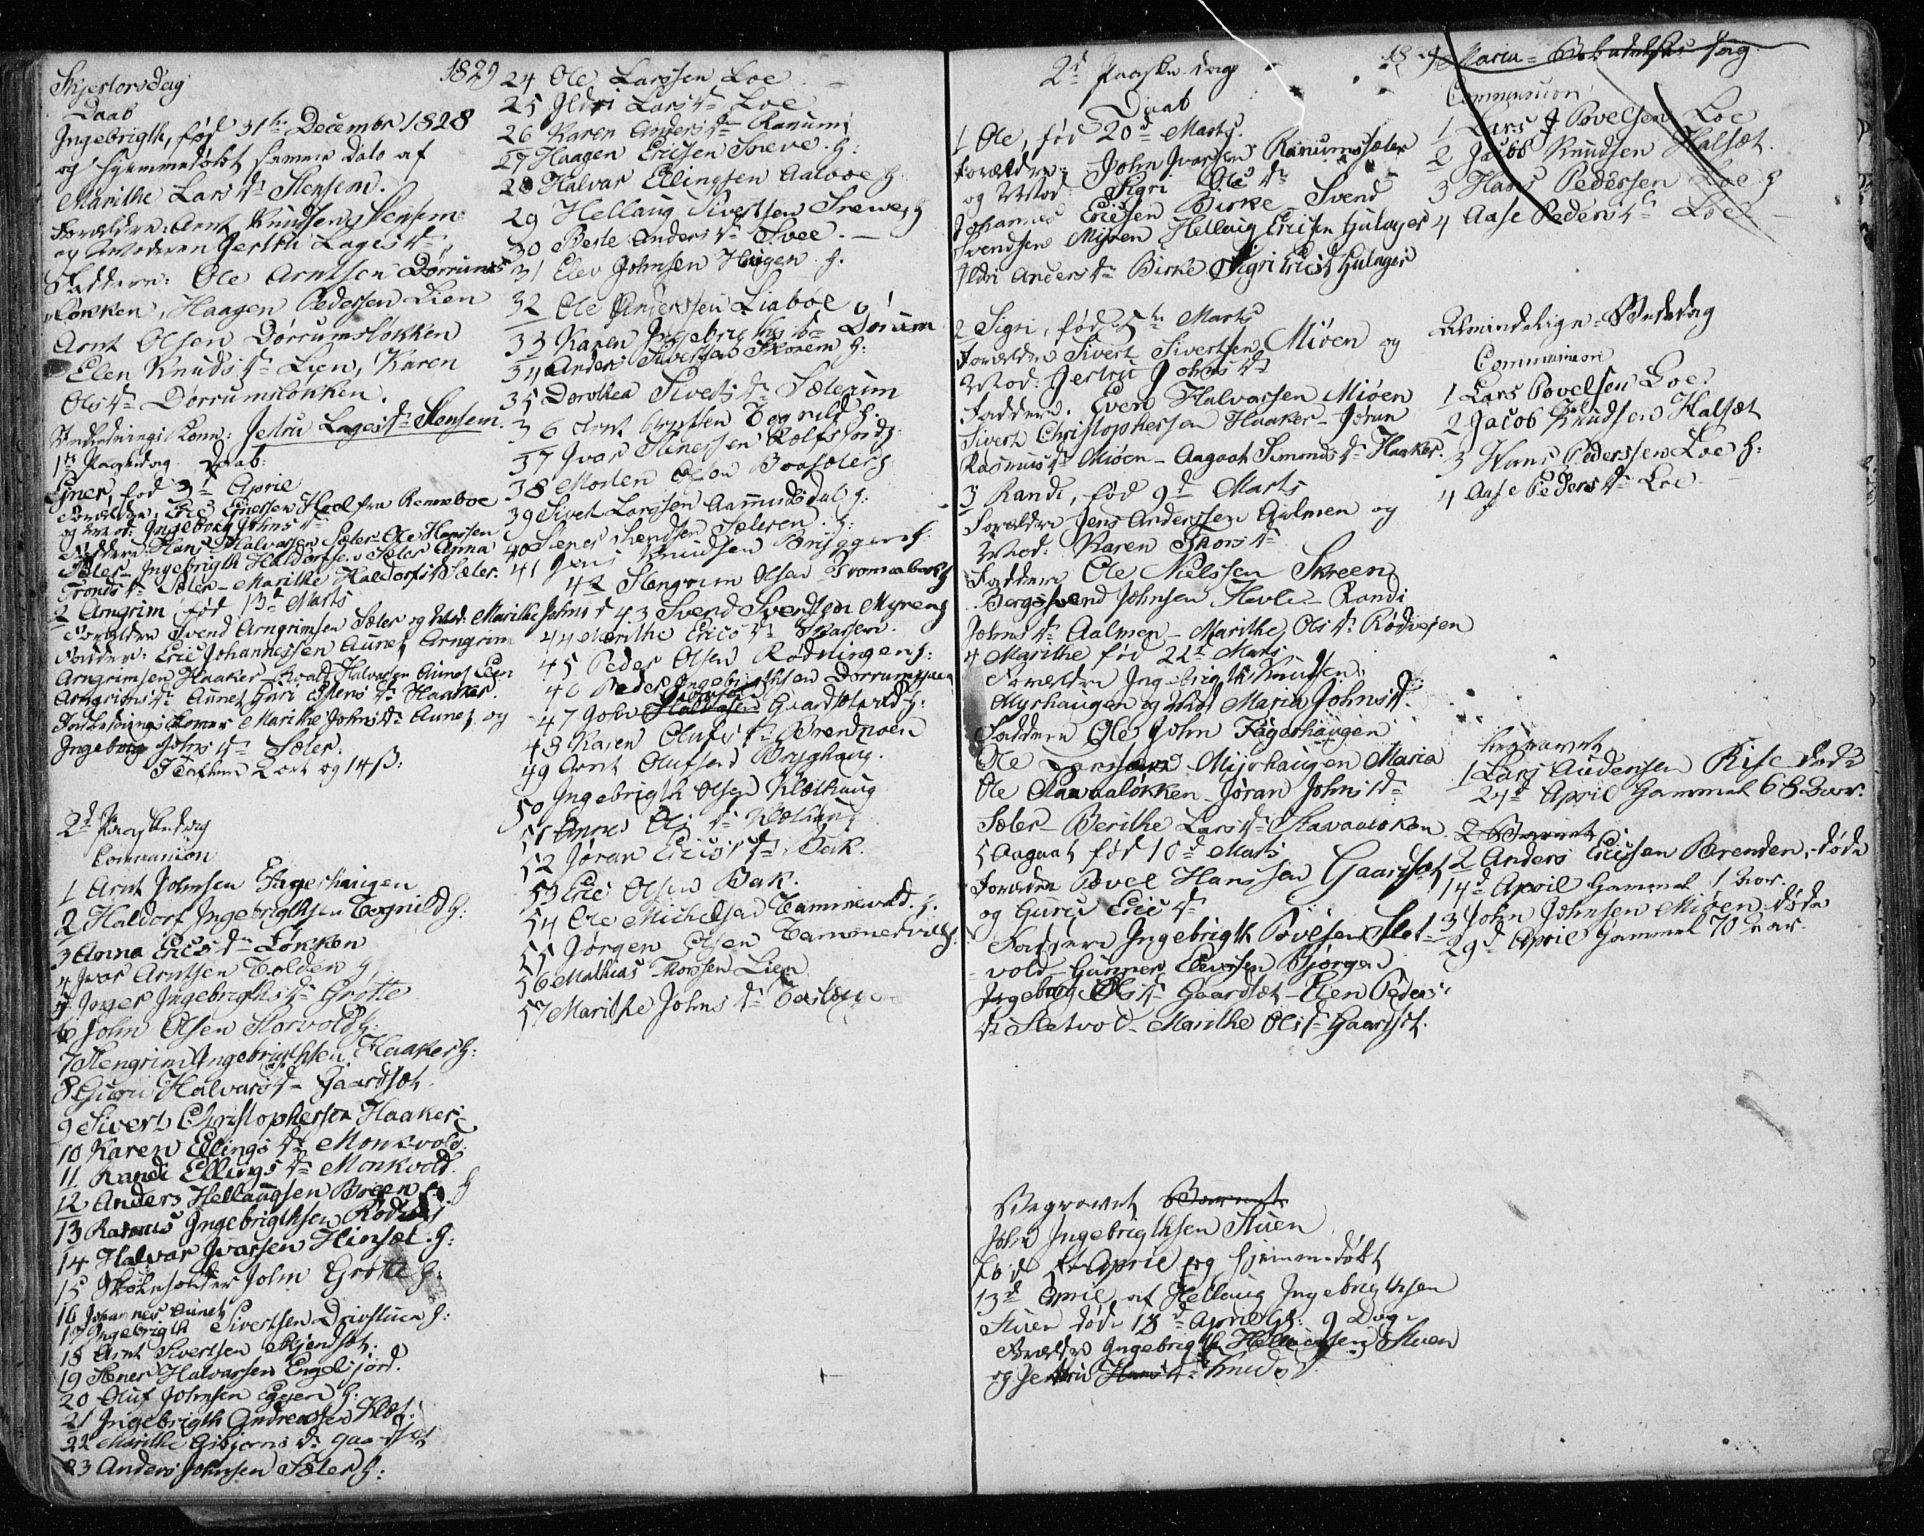 1829
Skjertorsdag
Daab
Ingebrigth, fød 31te December 1828
og hjemmedøbt samme Dato af
Marithe Lars Dr Stensem.
Forældre: Arnt Knudsen Stensem
og Moderen Jertru Lages Dr
Faddere: Ole Arntsen Dørrums
løkken, Haagen Pedersen Lien
Arnt Olsen Dørrumsløkken
Elen Knuds Dr Lien, Karen
Ols Dr Dørrumsløkken.
Indledningskone: Jertru Lages Dr Stensem.
1te Paaskedag Daab:
Einer, fød 3d April
Forældre, Eric Enersen Hoel fra Renneboe
og Mod: Ingeborg Johns Dr
Faddere Hans Halvarsen Sæter Ole Hanssen
Sæter, Ingebrigth Haldorsen Sæter Anna
Tronds Dr Sæter - Marithe Haldors Dr Sæter.
2 Arngrim fød 13d Marts
Forældre Svend Arngrimsen Sæter og Mod: Marithe Johns Dr
Faddere: Eric Johannessen Aunet Arngrim
Arngrimsen Haaker - Halvarsen Aunet
Arngrims Dr Aunet Guri Estens Dr Haaker.
Indledningskoner Marithe Johns Dr Aunet og
Ingeborg Johns Dr Sæter.
Tavlen 2 ort og 14 ß:
2d Paaskedag
Communion
1 Arnt Johnsen Fagerhaugen
2 Haldorf Ingebrigthsen Tognild G:
3 Anna Erics Dr Løkken
4 Ivar Arntsen Tolden G
5 Inger Ingebrigths Dr Grøtte
6 John Olsen Storvold G:
7 Stengrim Ingebrigthsen Haaker G:
8 Guru Halvars Dr Gaardsæt
9 Sivert Christophersen Haaker
10 Karen Ellings Dr Monkvold.
11 Randi Ellings Dr Monkvold
12 Anders Hellaugsen Brøen G
13 Rasmus Ingebrigthsen
14 Halvar Ivarsen Hinsæt. G:
15 Skoleholder John Grøtte G:
16 Johannes Aunet
17 Ingebrigth Sivertsen Drivstuen G:
18 Arnt Sivertsen Skjendsæt.
19 Stener Halvarsen Engelsjord.
20 Oluf Johnsen G:
21 Ingebrigth Andreassen Klæt.
22 Marithe Asbjørns Dr gaardset
23 Anders Johnsen Sæter G:
24 Ole Larssen Loe
25 Ildri Lars Dr Loe
26 Karen Anders Dr Ranum
27 Haagen Ericsen Sneve. G:
28 Halvar Ellingsen Aalboe G
29 Hellaug Sivertsen Snewe G
30 Berte Anders Dr Svee.
31 Elev Johnsen Haugen G.
32 Ole Anderssen Liabøe G
33 Karen Ingebrigths Dr Dørum
34 Anders Sivertsen Skorem G:
35 Dorothea Siverts Dr Sætrum
36 Arnt Arntsen Tognild G:
37 Ivar Stenersen Rolfshus G:
38 Morten Olsen Boasæter G
39 Sivert Larssen Aamundsdal G:
40 Stener Svendsen Sæteren. G:
41 Jens Knudsen Bruggen G:
42 Stengrim Olsen Dromsebak G
43 Svend Svendsen Myren G
44 Marithe Erics Dr Skaslien.
45 Peder Olsen Rødningen G:
46 Peder Ingebrigthsen Dørrumsjaren
47 John Ivarsen Gaardsetvold G:
48 Karen Olufs Dr Brendmoen
49 Arnt Olufsen Bryghaug.
50 Ingebrigth Olsen Klæthaug
51 Anne Ols Dr Klæthaug
52 Jøran Erics Dr Bak.
53 Eric Olsen Bak.
54 Ole Michelsen Tammesvold. G.
55 Jørgen Olsen Tammesvold G.
56 Mathias Thorsen Lien
57 Marithe Johns Dr
2d Paaske dag
Daab
1 Ole, fød 20d Marts.
Forældre: John Ivarsen Ranumssæter
og Mod. Sigri Ols Dr
Johannes Ericsen Birke - Svend
Svendsen Myren Hellaug Ericsen Gulager
Ildri Anders Dr Birke Sigri Erics Dr Gulager
2 Sigri, fød 5te Marts
Forældre Sivert Sivertsen Miøen og
Mod: Jertru Johns Dr
Faddere. Even Halvarsen Miøen
Sivert Christophersen Haaker - Jøran
Rasmus Dr Miøen - Aagaat Simons Dr Haaker.
3 Randi, fød 9d Marts
Forældre Jens Anderssen Aalmen og
Mod: Karen Thors Dr
Faddere Ole Nielssen Skreen
Bergsvend Johnsen Hevle - Randi
Johns Dr Aalmen - Marithe Ols Dr Rødvejen
4 Marithe fød 22d Marts
Forældre Ingebrigth Knudsen
Myrhaugen og Mod Maria Johns Dr.
Faddere Ole John Fagerhaugen
Ole Larssen Myrhaugen Maria
Ole Stavaaløkken - Jøran Johns Dr
Sæter - Berithe Lars Dr Stavaaløkken.
5 Aagaat fød 10d Marts
Forældre Povel Hanssen Gaardsæt
og Guru Erics Dr
Faddere Ingebrigth Povelsen Slet-
vold - Gunner Eversen Bjørgen
Ingeborg Ols Dr Gaardsæt - Elen Peders
Dr Sletvold - Marithe Ols Dr Gaardset.
Begravet
John Ingebrigthsen Stuen
fød 5te April og hjemmedøbt
13d April af Hellaug Ingebrigthsen
Stuen døde 13d April Gl: 9 Dage
Forældre Ingebrigth Stuen
og Jertru Knuds Dr
1829 Maria Bebudelses Dag
Communion
1 Lars Povelsen Loe
2 Jacob Knudsen Halsæt.
3 Hans Pedersen Loe G
4 Aase Peders Dr Loe
Almindelige Bededag
Communion
1 Lars Povelsen Loe G:
2 Jacob Knudsen Halsæt
3 Hans Pederssen Loe G:
4 Aase Peders Dr Loe
Begravet
1 Lars Andersen Rise døde
24d April Gammel 68 Aar.
2 Anders Ericsen Brenden, døde
14d April Gammel 1 Aar.
3 John Johnsen Miøen døde
29d April Gammel 70 Aar.